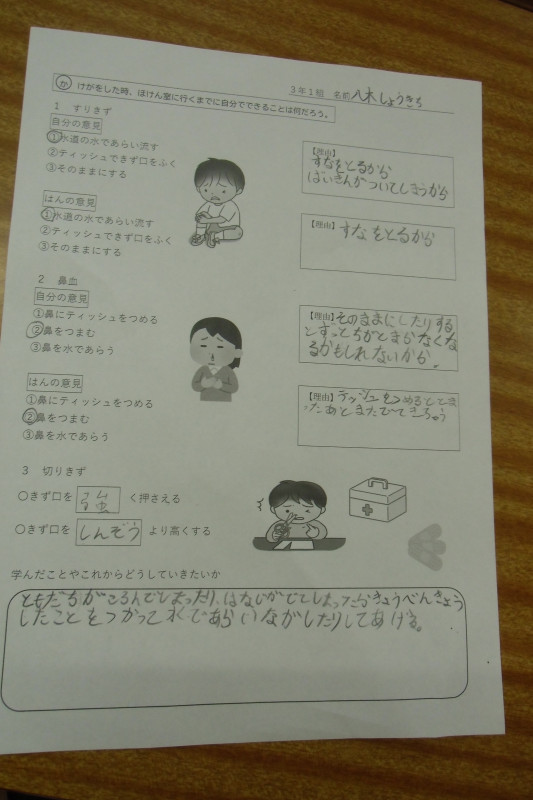 3年1組 名前 八木しょうきち
か けがをした時、ほけん室に行くまでに自分でできることは何だろう。
1 すりきず
自分の意見
①水道の水であらい流す
②ティッシュできず口をふく
③そのままにする
【理由】
すなをとるから
ばいきんがついてしまうから
はんの意見
①水道の水であらい流す
②ティッシュできず口をふく
③そのままにする
【理由】
すなをとるから
2 鼻血
自分の意見
①鼻にティッシュをつめる
②鼻をつまむ
③鼻を水であらう
【理由】そのままにしたりする
とずっとちがとまらなくな
るかもしれないから。
はんの意見
①鼻にティッシュをつめる
②鼻をつまむ
③鼻を水であらう
【理由】テッシュをつめるととま
ったあとまたでてきちゃう
3 切りきず
○きず口を 強 く押さえる
○きず口を しんぞう より高くする
学んだことやこれからどうしていきたいか
ともだちがころんでしまったり、はなじがでてしまったらきょうべんきょう
したことをつかって水であらいながしたりしてあげる。